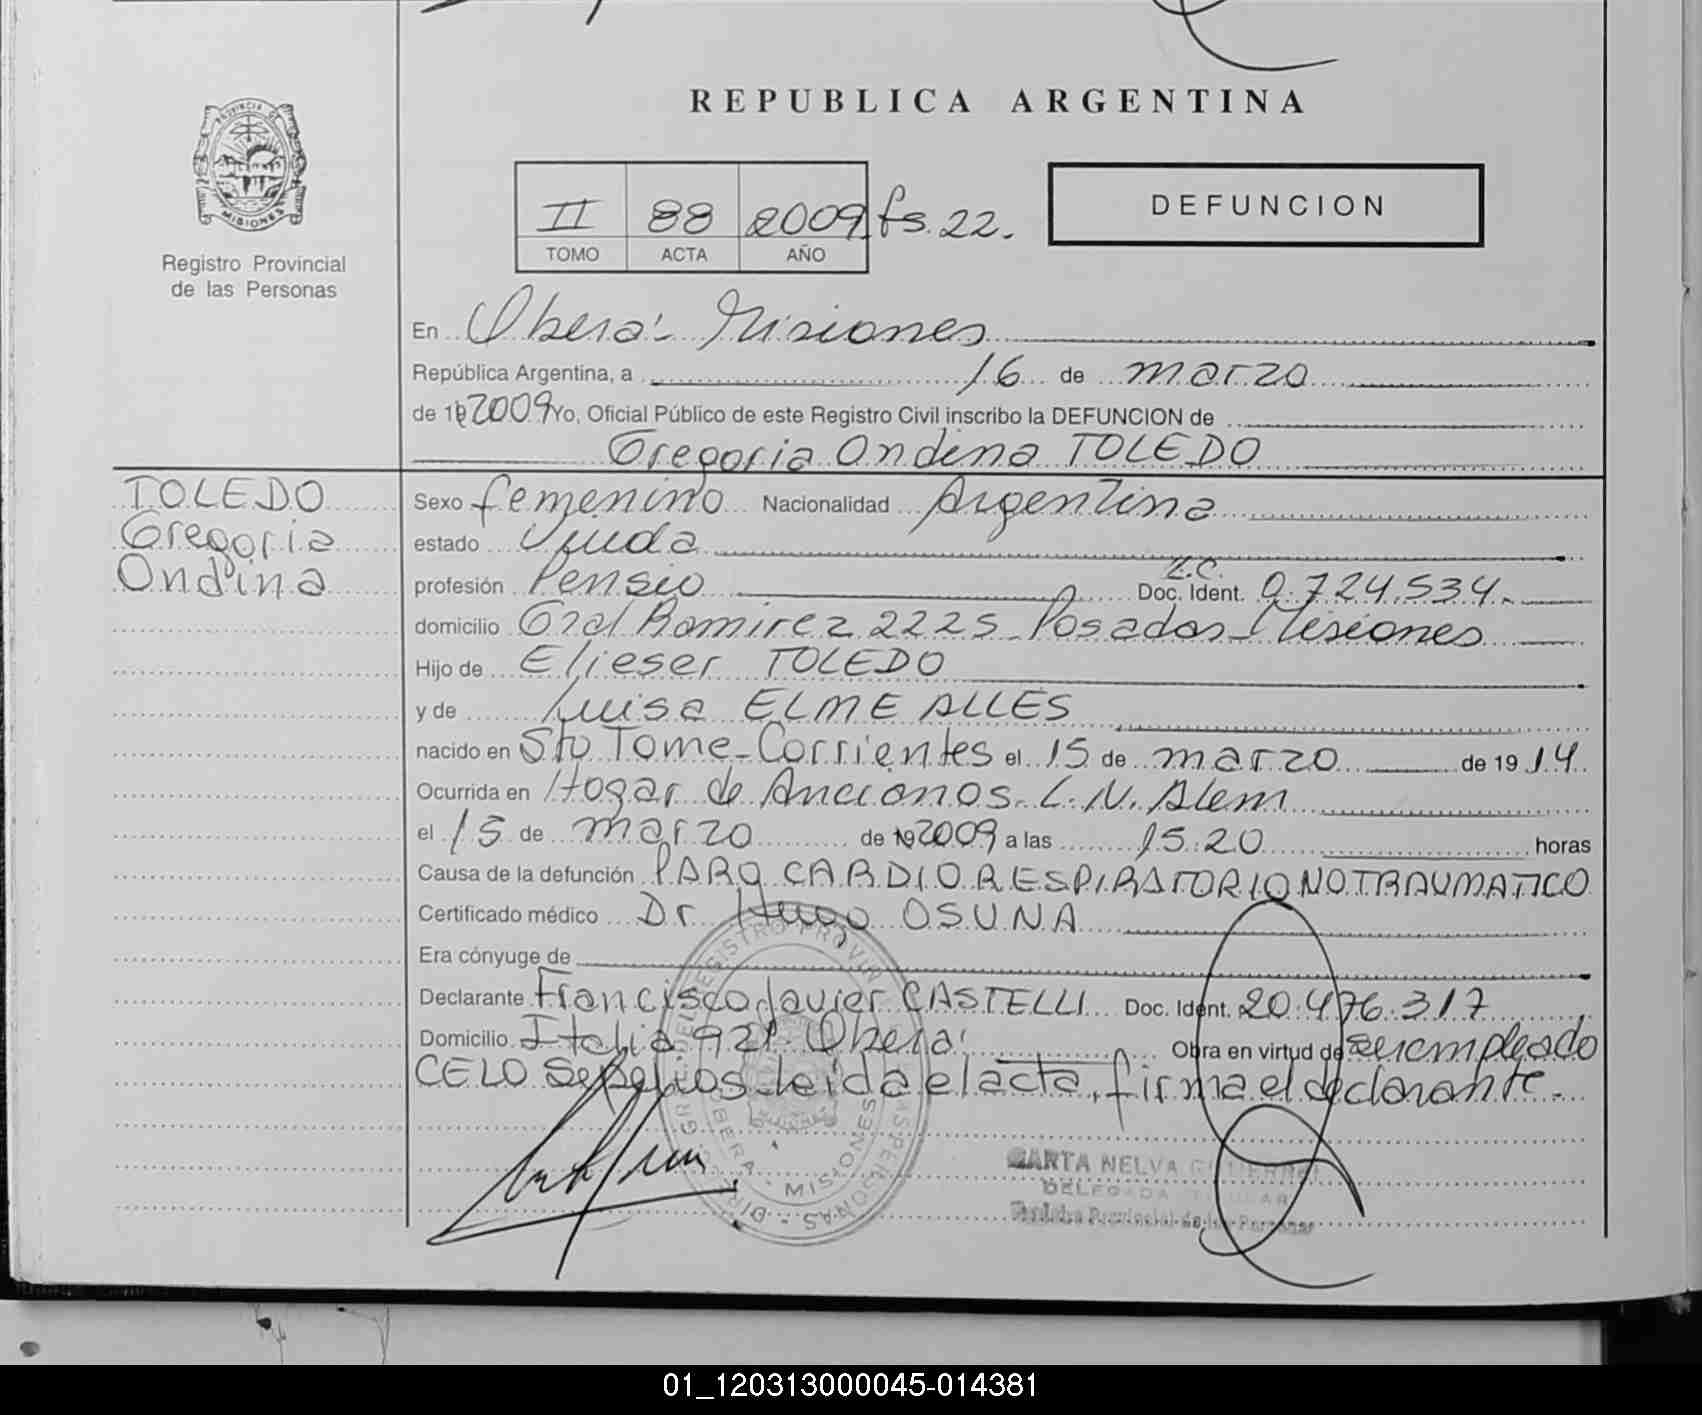 REPUBLICA ARGENTINA
PROVINCIA DE
MISIONES
Registro Provincial
de las Personas
II 88 2009 fs. 22.
TOMO ACTA AÑO
DEFUNCION
En Obera- Misiones
República Argentina, a 16 de marzo
de 19 2009 Yo, Oficial Público de este Registro Civil inscribo la DEFUNCION de
Gregoria Ondina TOLEDO
TOLEDO
Gregoria
Ondina
Sexo femenino Nacionalidad Argentina
estado Viuda
profesión Pensio L.C. Doc. Ident. 0.724.534.-
domicilio Gral Ramirez 2225 - Posadas - Misiones
Hijo de Elieser TOLEDO
y de Luisa ELME ALLES
nacido en Sto Tome - Corrientes el 15 de marzo de 19 14
Ocurrida en Hogar de Ancianos. L. N. Alem
el 15 de marzo de 19 2009 a las 15:20 horas
Causa de la defunción PARO CARDIO RESPIRATORIO NO TRAUMATICO
Certificado médico Dr. Hugo OSUNA
Era cónyuge de
Declarante Francisco Javier CASTELLI Doc. Ident. 20.476.317
Domicilio Italia 921. Obera Obra en virtud de ser empleado
CELO Sepelios leida el acta, firma el declarante.-
OBERA - MISIONES
MARTA NELVA
DELEGADA TITULAR
Registro Provincial de las Personas
01_120313000045-014381